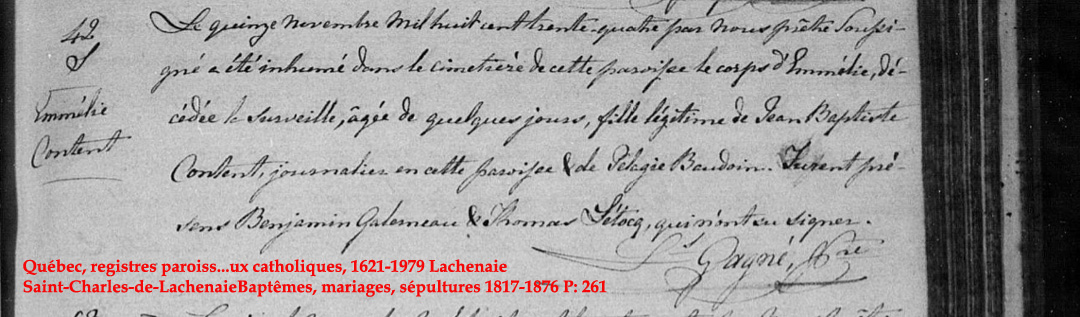 42
S
Emmélie
Content
Le quinze novembre mil huit cent trente-quatre par nous prêtre soussi-
gné a été inhumé dans le cimetière de cette paroisse le corps d'Emmélie, dé-
cédée la surveille, âgée de quelques jours, fille légitime de Jean Baptiste
Content, journalier en cette paroisse & de Pélagie Baudoin. Furent pré-
sens Benjamin Galerneau & Thomas Létocq, qui n'ont su signer.
Gagné, Ptre
Québec, registres paroiss...ux catholiques, 1621-1979 Lachenaie
Saint-Charles-de-LachenaieBaptêmes, mariages, sépultures 1817-1876 P: 261